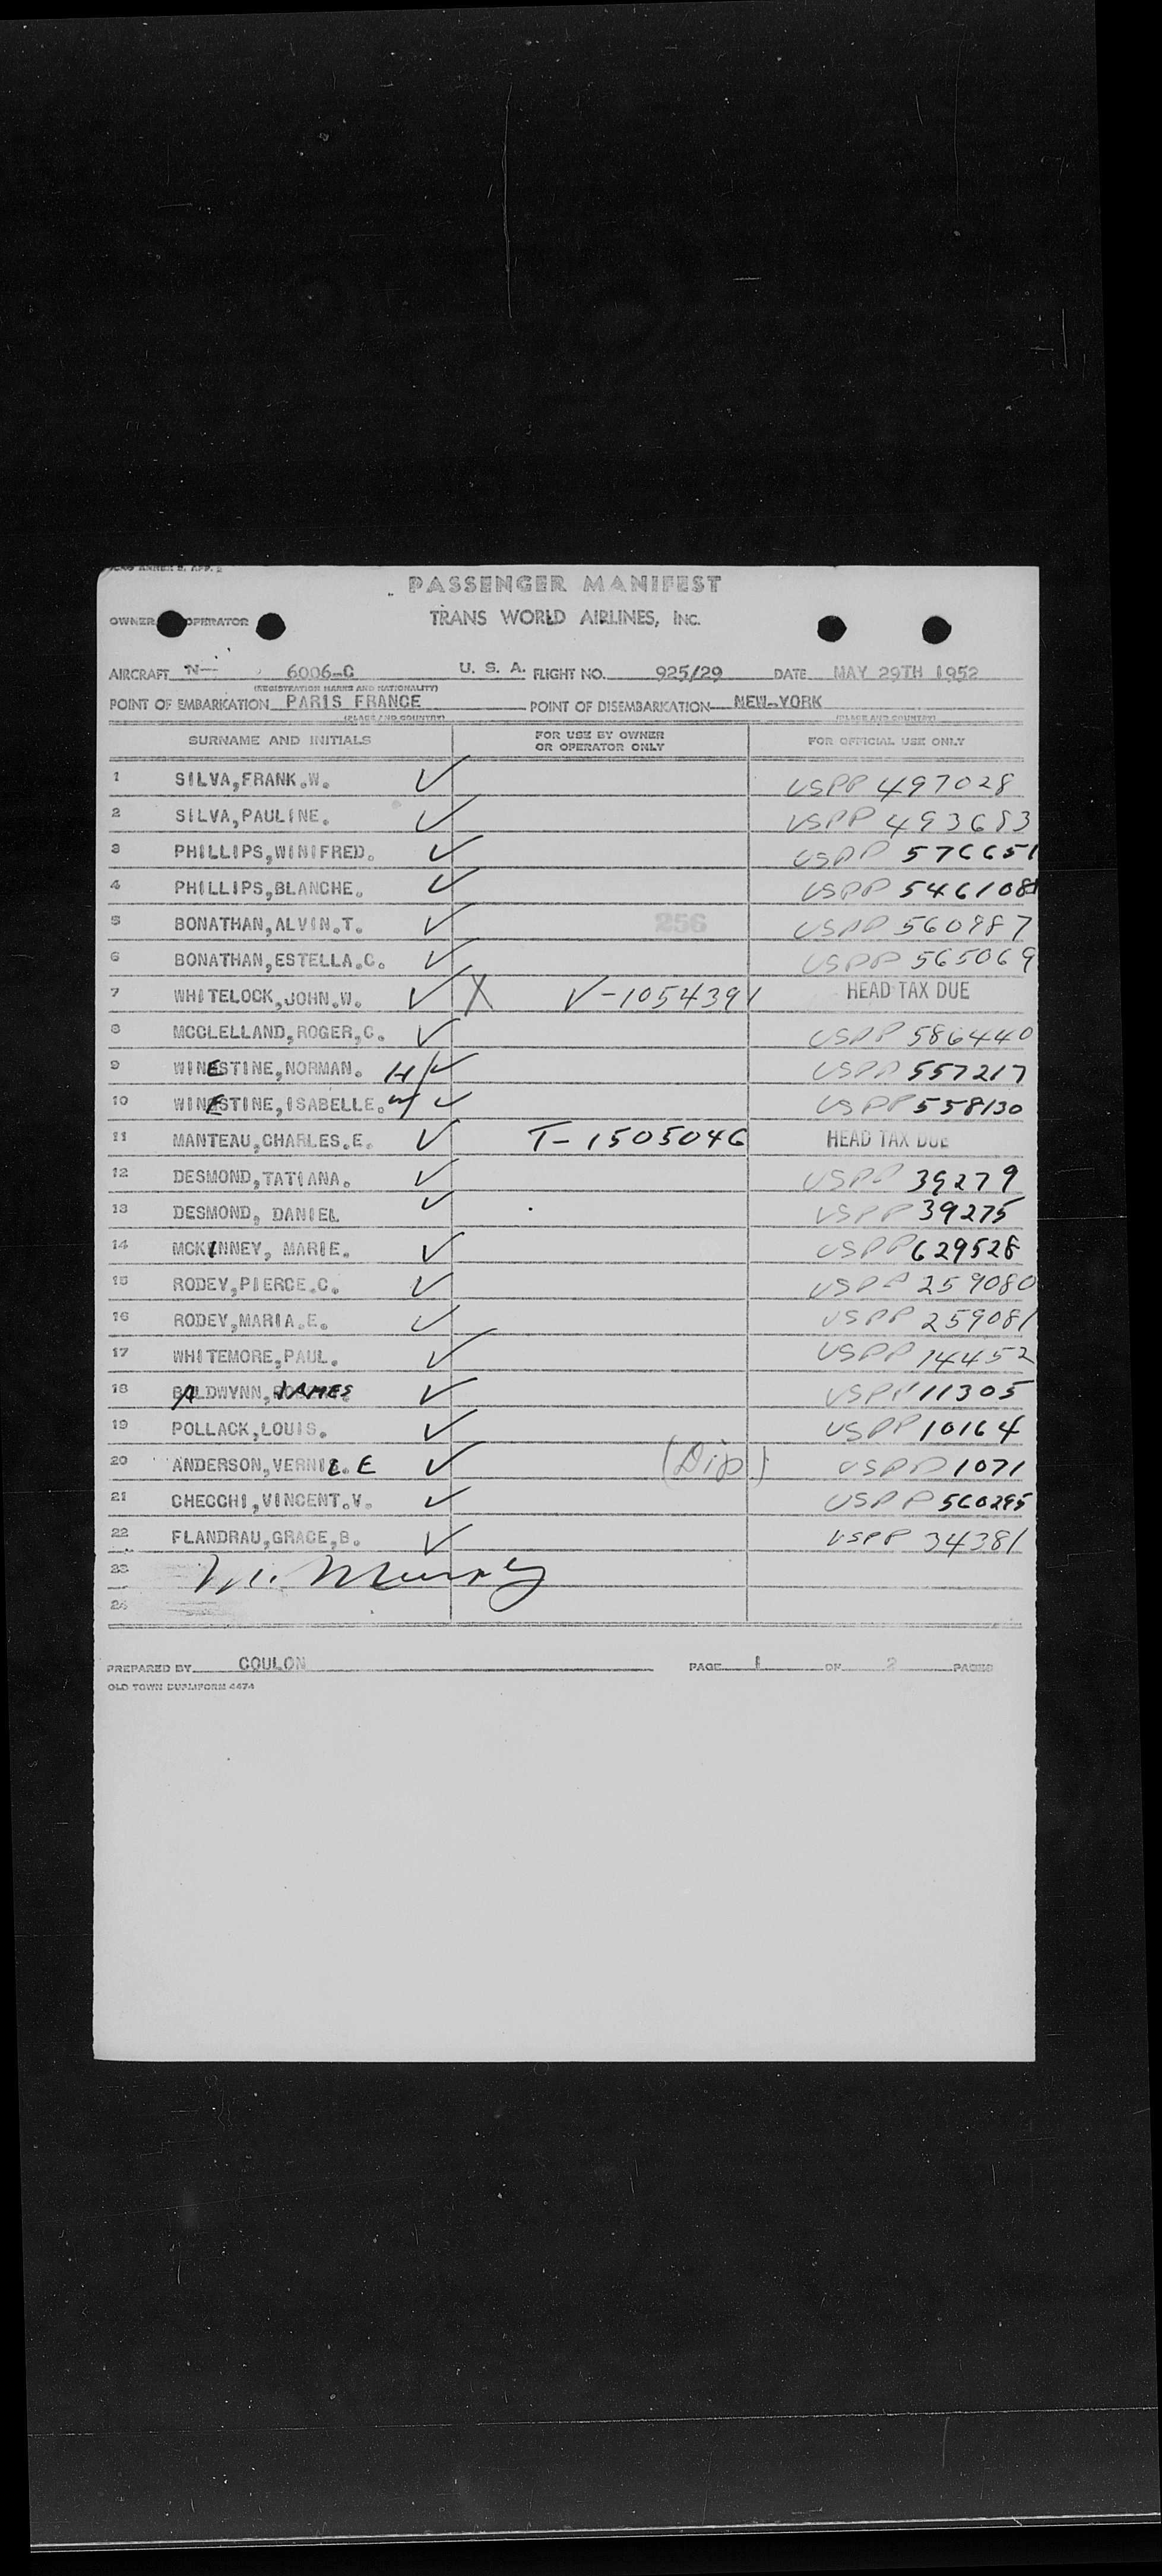 ICAO ANNEX 9, APP. 2
PASSENGER MANIFEST
OWNER OPERATOR TRANS WORLD AIRLINES, INC.
AIRCRAFT N- 6006-C U. S. A. FLIGHT NO. 925/29 DATE MAY 29TH 1952
(REGISTRATION MARKS AND NATIONALITY)
POINT OF EMBARKATION PARIS FRANCE POINT OF DISEMBARKATION NEW-YORK
(PLACE AND COUNTRY) (PLACE AND COUNTRY)
SURNAME AND INITIALS FOR USE BY OWNER OR OPERATOR ONLY FOR OFFICIAL USE ONLY
1 SILVA,FRANK.W. ✓ USPP 497028
2 SILVA,PAULINE. ✓ USPP 493683
3 PHILLIPS,WINIFRED. ✓ USPP 576651
4 PHILLIPS,BLANCHE. ✓ USPP 546108
5 BONATHAN,ALVIN.T. ✓ 256 USPP 560987
6 BONATHAN,ESTELLA.C. ✓ USPP 565069
7 WHITELOCK,JOHN.W. ✓ X V-1054391 HEAD TAX DUE
8 MCCLELLAND,ROGER,C. ✓ USPP 586440
9 WINESTINE,NORMAN. H/✓ USPP 557217
10 WINESTINE,ISABELLE. W/✓ USPP 558130
11 MANTEAU,CHARLES.E. ✓ T-1505046 HEAD TAX DUE
12 DESMOND,TATIANA. ✓ USPP 39279
13 DESMOND, DANIEL ✓ USPP 39275
14 MCKINNEY, MARIE. ✓ USPP 629528
15 RODEY,PIERCE.C. ✓ USPP 259080
16 RODEY,MARIA.E. ✓ USPP 259081
17 WHITEMORE,PAUL. ✓ USPP 14452
18 BALDWYNN, JAMES ✓ USPP 11305
19 POLLACK,LOUIS. ✓ USPP 10164
20 ANDERSON,VERNIL.E ✓ (Dip) USPP 1071
21 CHECCHI,VINCENT.V. ✓ USPP 560295
22 FLANDRAU,GRACE,B. ✓ USPP 34381
23 M. Murphy
24
PREPARED BY COULON PAGE 1 OF 2 PAGES
OLD TOWN DUPLIFORM 4474